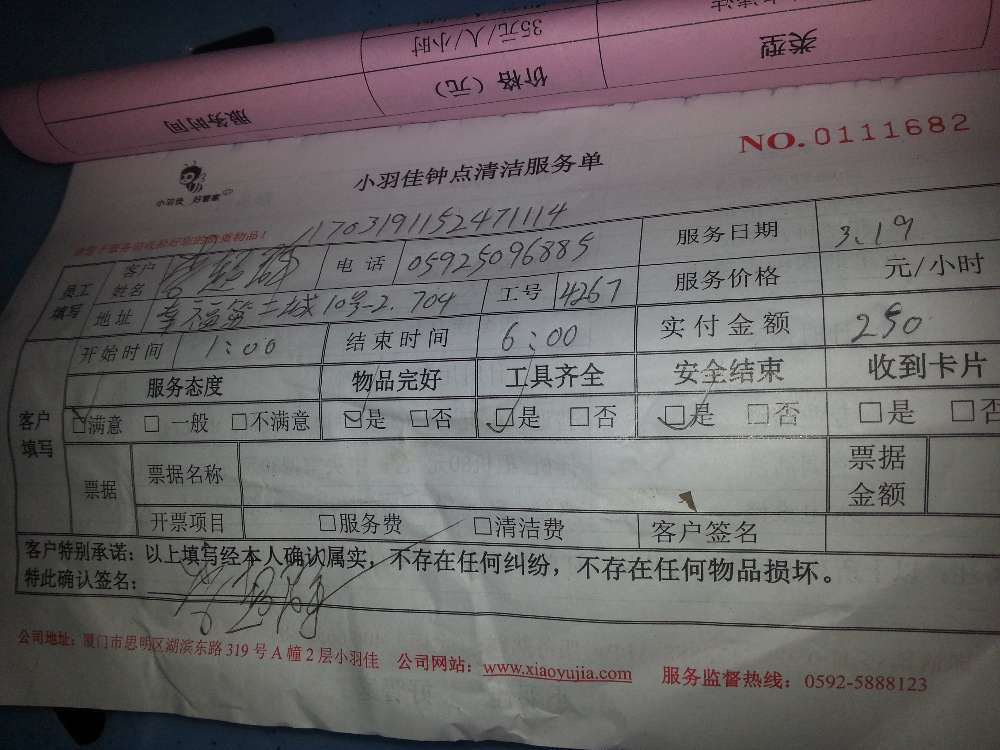 类型
35元/人/小时
价格（元）
服务时间
NO.0111682
小羽佳 好管家
小羽佳钟点清洁服务单
1703191152471114
员工填写
客户姓名
电话 05925096885
服务日期 3.19
地址 幸福第二城10号-2.704
工号 4267
服务价格 元/小时
开始时间 1:00
结束时间 6:00
实付金额 250
客户填写
服务态度 物品完好 工具齐全 安全结束 收到卡片
□满意 □一般 □不满意 ☑是 □否 □是 □否 □是 □否 □是 □否
票据 票据名称 票据金额
开票项目 □服务费 □清洁费 客户签名
客户特别承诺：以上填写经本人确认属实，不存在任何纠纷，不存在任何物品损坏。
特此确认签名：
公司地址：厦门市思明区湖滨东路319号A幢2层小羽佳 公司网站：www.xiaoyujia.com 服务监督热线：0592-5888123